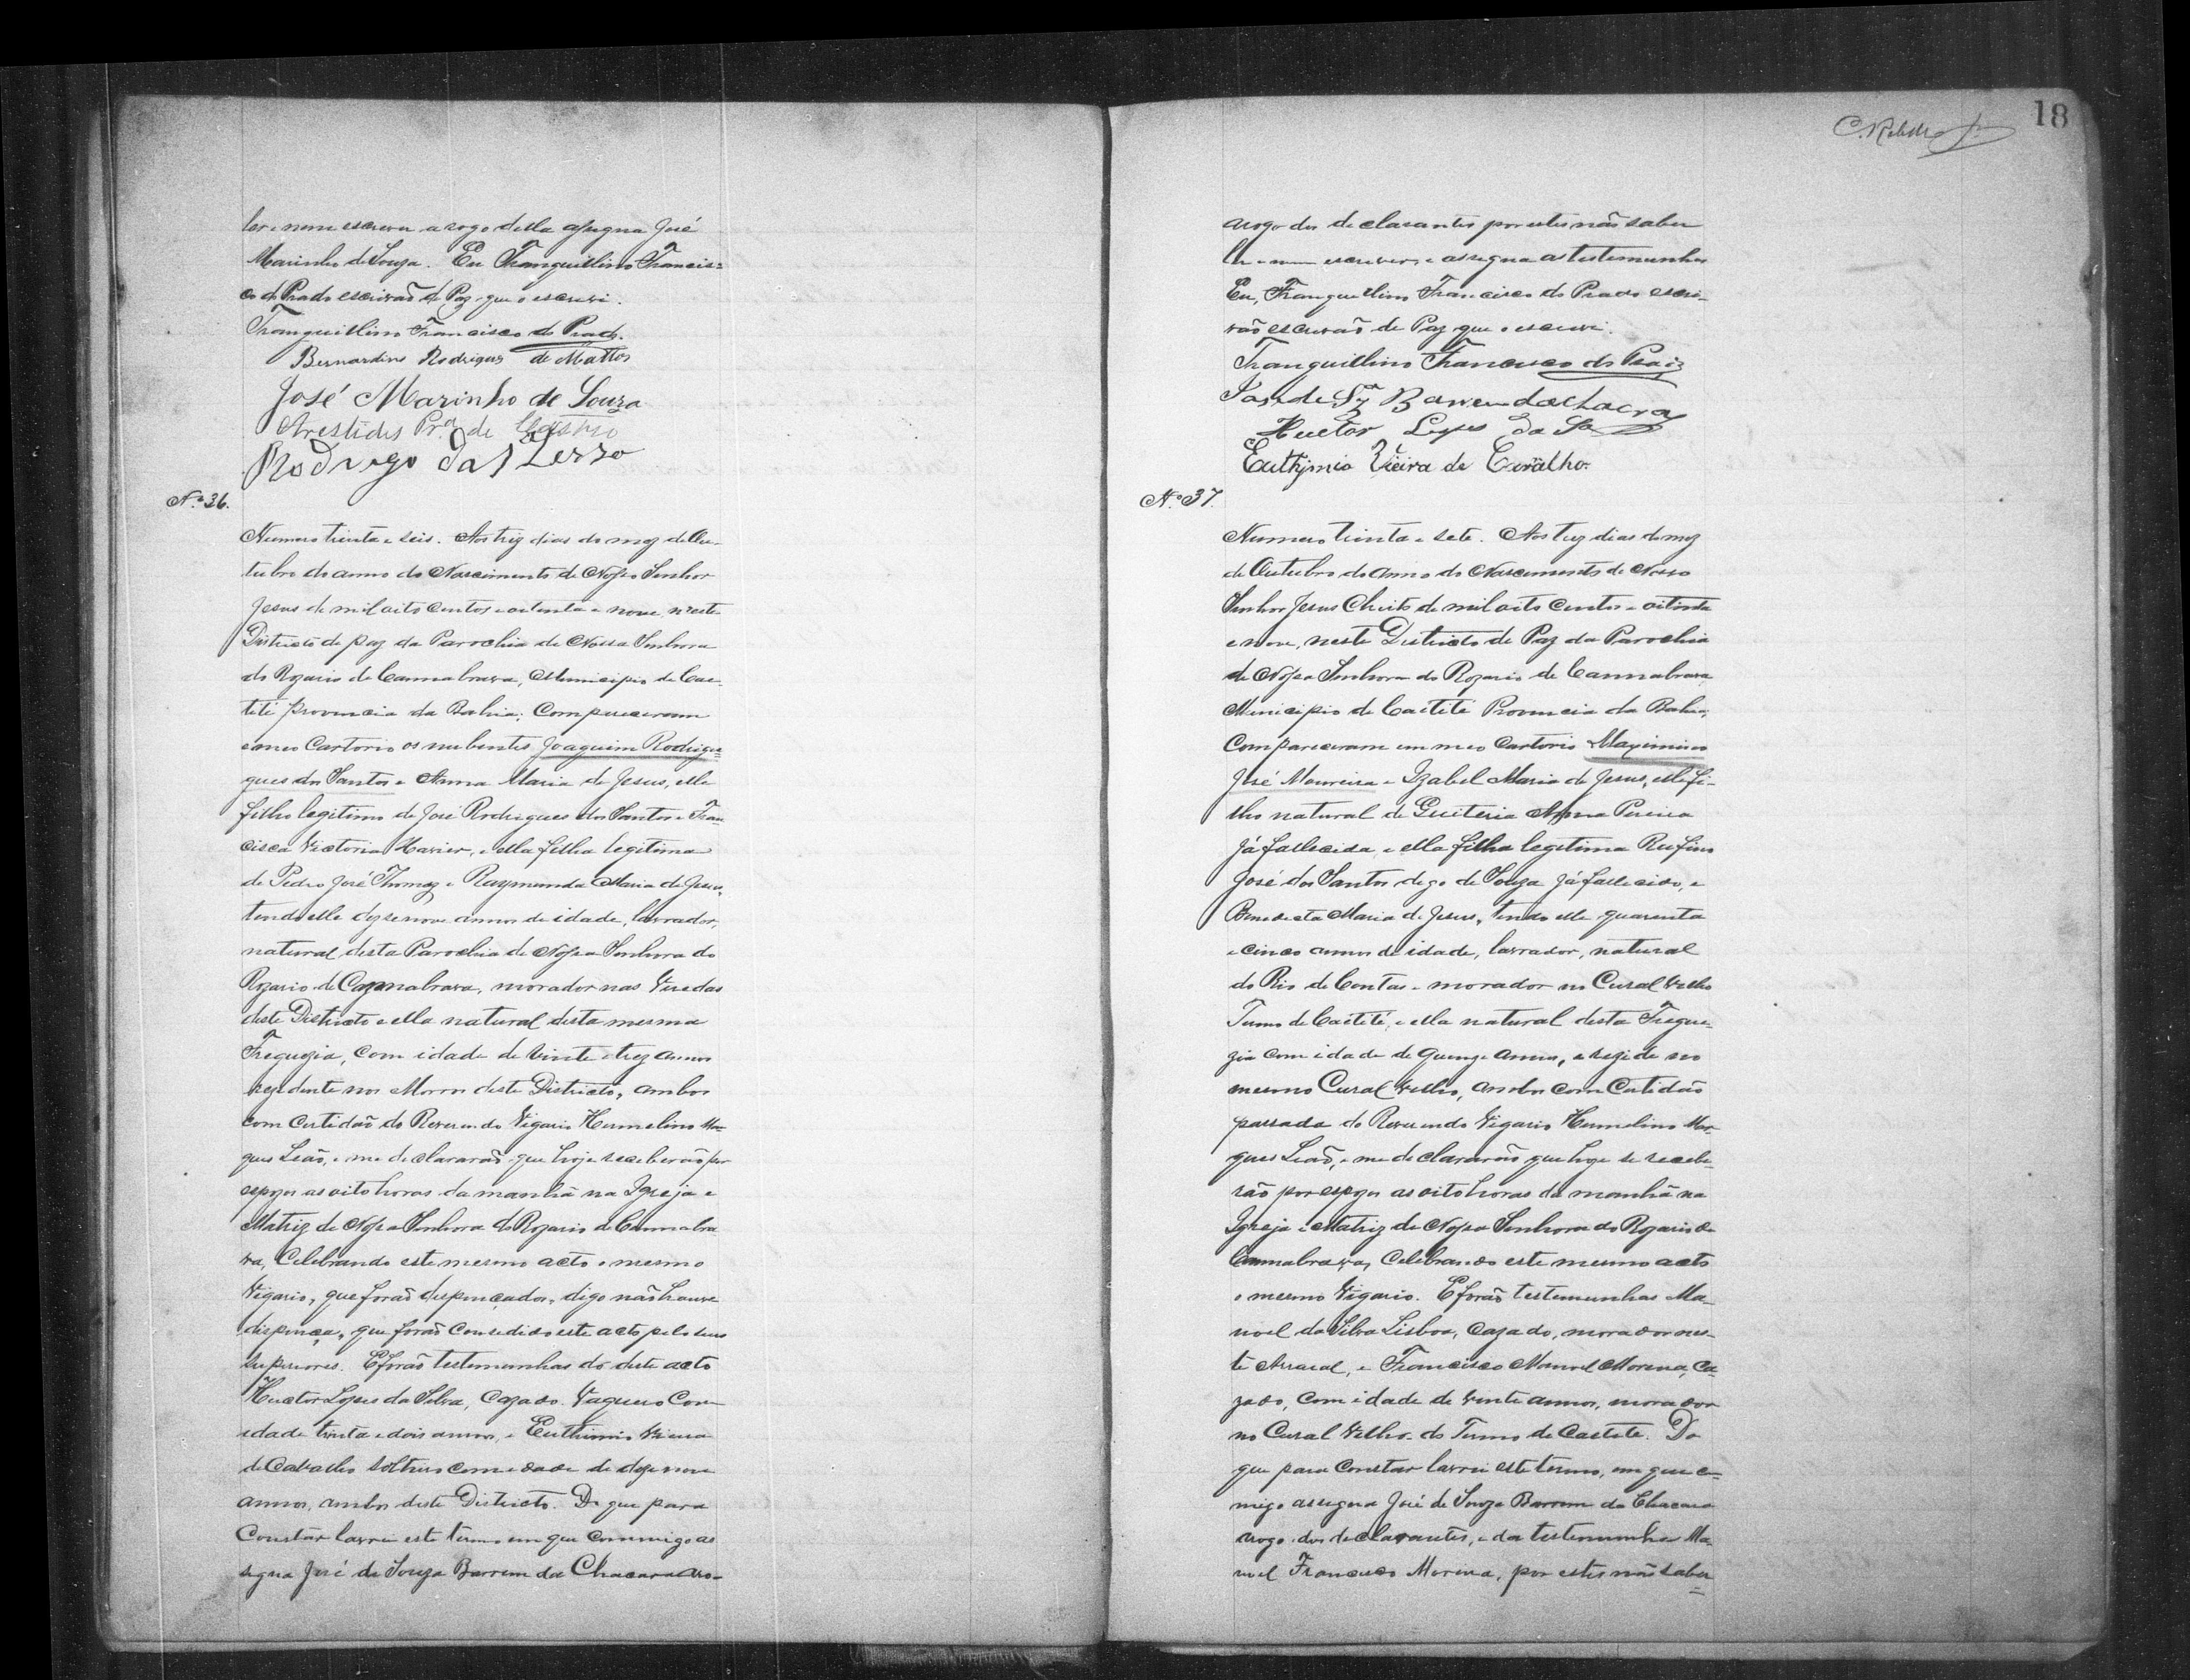 ler e nem escrever a rogo della assigna José
Marinho de Souza. Eu Tranquillino Francis=
co do Prado escrivaõ de Paz que o escrevi.
Tranquillino Francisco do Prado.
Bernardino Rodrigues de Mattos
José Marinho de Souza
Arestides Pr.ª de Castro
Rodrigo
Nº 36.
Numero trenta e seis. Aos trez dias do mez de Ou-
tubro do anno do Nascimento de Nosso Senhor
Jesus de mil oito centos e oitenta e nove, n'este
Districto de paz da Parochia de Nossa Senhora
do Rozario de Cannabrava, Municipio de Cae-
tité Provincia da Bahia; Compareceram
em meo Cartorio os nubentes Joaquim Rodrigu=
gues dos Santos e Anna Maria de Jesus, elle
filho legitimo de José Rodrigues dos Santos e Fran-
cisca Victoria Xavier, e ella filha legitima
de Pedro José Thomaz e Raymunda Maria de Jesus,
tendo elle dezenove annos de idade, lavrador,
natural desta Parochia de Nossa Senhora do
Rozario de Cannabrava, morador nas Veredas
deste Districto e ella natural desta mesma
Freguezia, com idade de vinte e trez annos
rezidente nos Morros deste Districto, ambos
com Certidaõ do Reverendo Vigario Hermelino Mar-
ques Leaõ, e me declararaõ que hoje receberaõ por
espozos as oito horas da manhã na Igreja e
Matriz de Nossa Senhora do Rozario de Cannabra-
va, Celebrando este mesmo acto o mesmo
Vigario, que foraõ despençados, digo naõ houve
dispença, que foraõ Concedido este acto pelo seus
superiores. E foraõ testemunhas do deste acto
Huctor Lopes da Silva, Cazado Vaqueiro Com
idade trinta e dois annos, e Euthimio Vieira
de Carvalho solteiro com idade de dezenove
annos, ambos deste Districto. Do que para
Constar lavrei este termo em que commigo as
signa José de Souza Barrem da Chacara aro-
18
arogo dos declarantes por estes naõ saber
ler e nem escrever, e assigna as testemunhas
Eu, Tranquillino Francisco do Prado escri-
vaõ escrivaõ de Paz que o escrevi.
Tranquillino Francisco do Prado
José de Sz Barrem da Chacra
Huctor Lopes da Sª
Euthjmio Vieira de Carvalho.
Nº 37.
Numero trinta e sete. Aos trez dias do mez
de Outubro do anno do Nascimento de Nosso
Senhor Jesus Christo de mil oito centos e oitenta
e nove, neste Districto de Paz da Parochia
de Nossa Senhora do Rozario de Cannabrava
Municipio de Caetité Provincia da Bahia,
Compareceram em meo Cartorio Maximino
José Moureira e Izabel Maria de Jesus, elle fi-
lho natural de Guiteria Anna Pereira
já fallecida, e ella filha legitima Rufino
José dos Santos digo de Souza já fallecido, e
Benedicta Maria de Jesus, tendo elle quarenta
e cinco annos de idade, lavrador, natural
do Rio de Contas e morador no Cural Velho
Termo de Caetité, e ella natural desta Fregue-
zia com idade de quinze annos, e rezide no
mesmo Cural Velho, ambos com Certidaõ
passada do Reverendo Vigario Hermelino Mar-
ques Leaõ, e me declararaõ que hoje se recebe-
raõ por espozos as oito horas da manhã na
Igreja e Matriz de Nossa Senhora do Rozario de
Cannabrava, Celebrando este mesmo acto
o mesmo Vigario. E foraõ testemunhas Ma-
noel da Silva Lisboa, cazado, morador nes-
te Arraial, e Francisco Manoel Moreira, Ca-
zado, com idade de vinte annos, morador
no Cural Velho do Termo de Caetete. Do
que para constar lavrei este termo, em que co-
migo assigna José de Souza Barrem da Chacara
arogo dos declarantes, e da testemunha Ma-
noel Francisco Moreira, por estes naõ saber